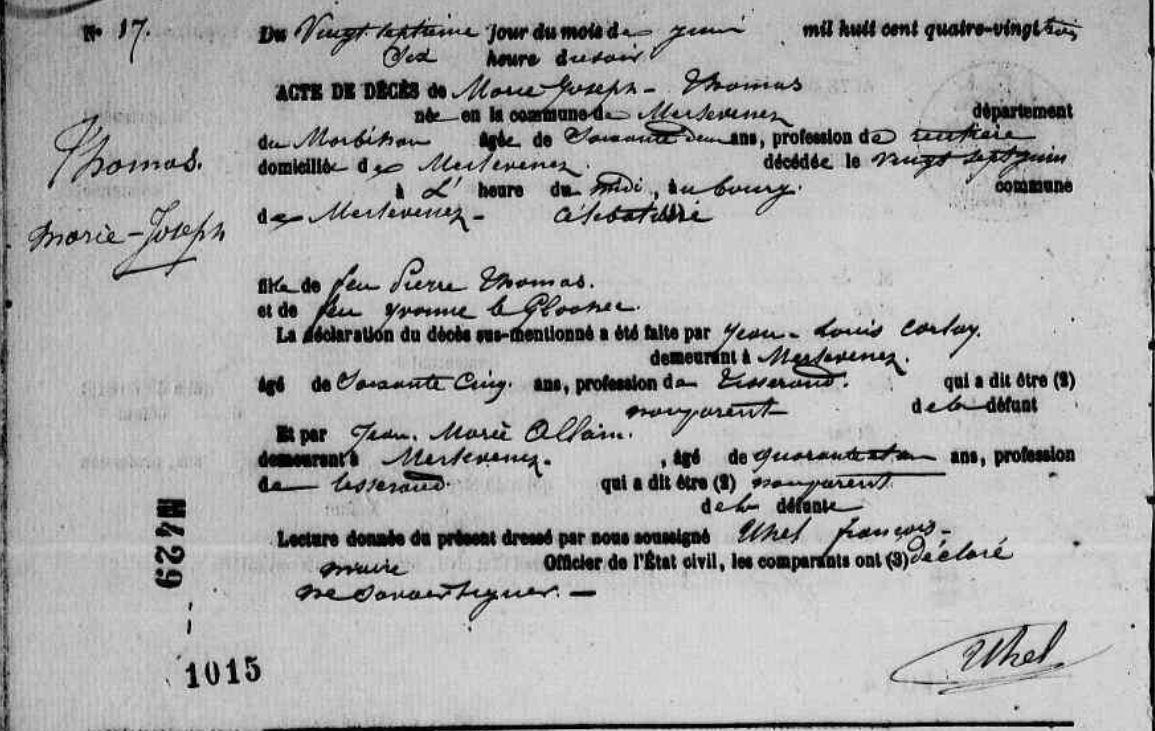 N° 17. Du Vingt septième jour du mois de juin mil huit cent quatre-vingt trois
Six heure du soir
ACTE DE DÉCÈS de Marie Joseph - Thomas
née en la commune de Merlevenez département
du Morbihan âgée de Soixante deux ans, profession de rentière
Thomas.
domiciliée de Merlevenez. décédée le vingt sept juin
à L' heure du midi, au bourg. commune
de Merlevenez - célibataire
marie-Joseph
fille de feu Pierre Thomas.
et de feu Yvonne le
La déclaration du décès sus-mentionné a été faite par Jean-Louis
demeurant à Merlevenez.
âgé de Soixante Cinq. ans, profession de Tisserand. qui a dit être (2)
non parent de la défunt
Et par Jean. Marie Allain.
demeurant à Merlevenez. , âgé de quarante et un ans, profession
de tisserand qui a dit être (2) non parent
de la défunte
Lecture donnée du présent dressé par nous soussigné Uhel françois -
maire Officier de l'État civil, les comparants ont (3) déclaré
ne Savoir Signer. -
N429
--
1015
Uhel